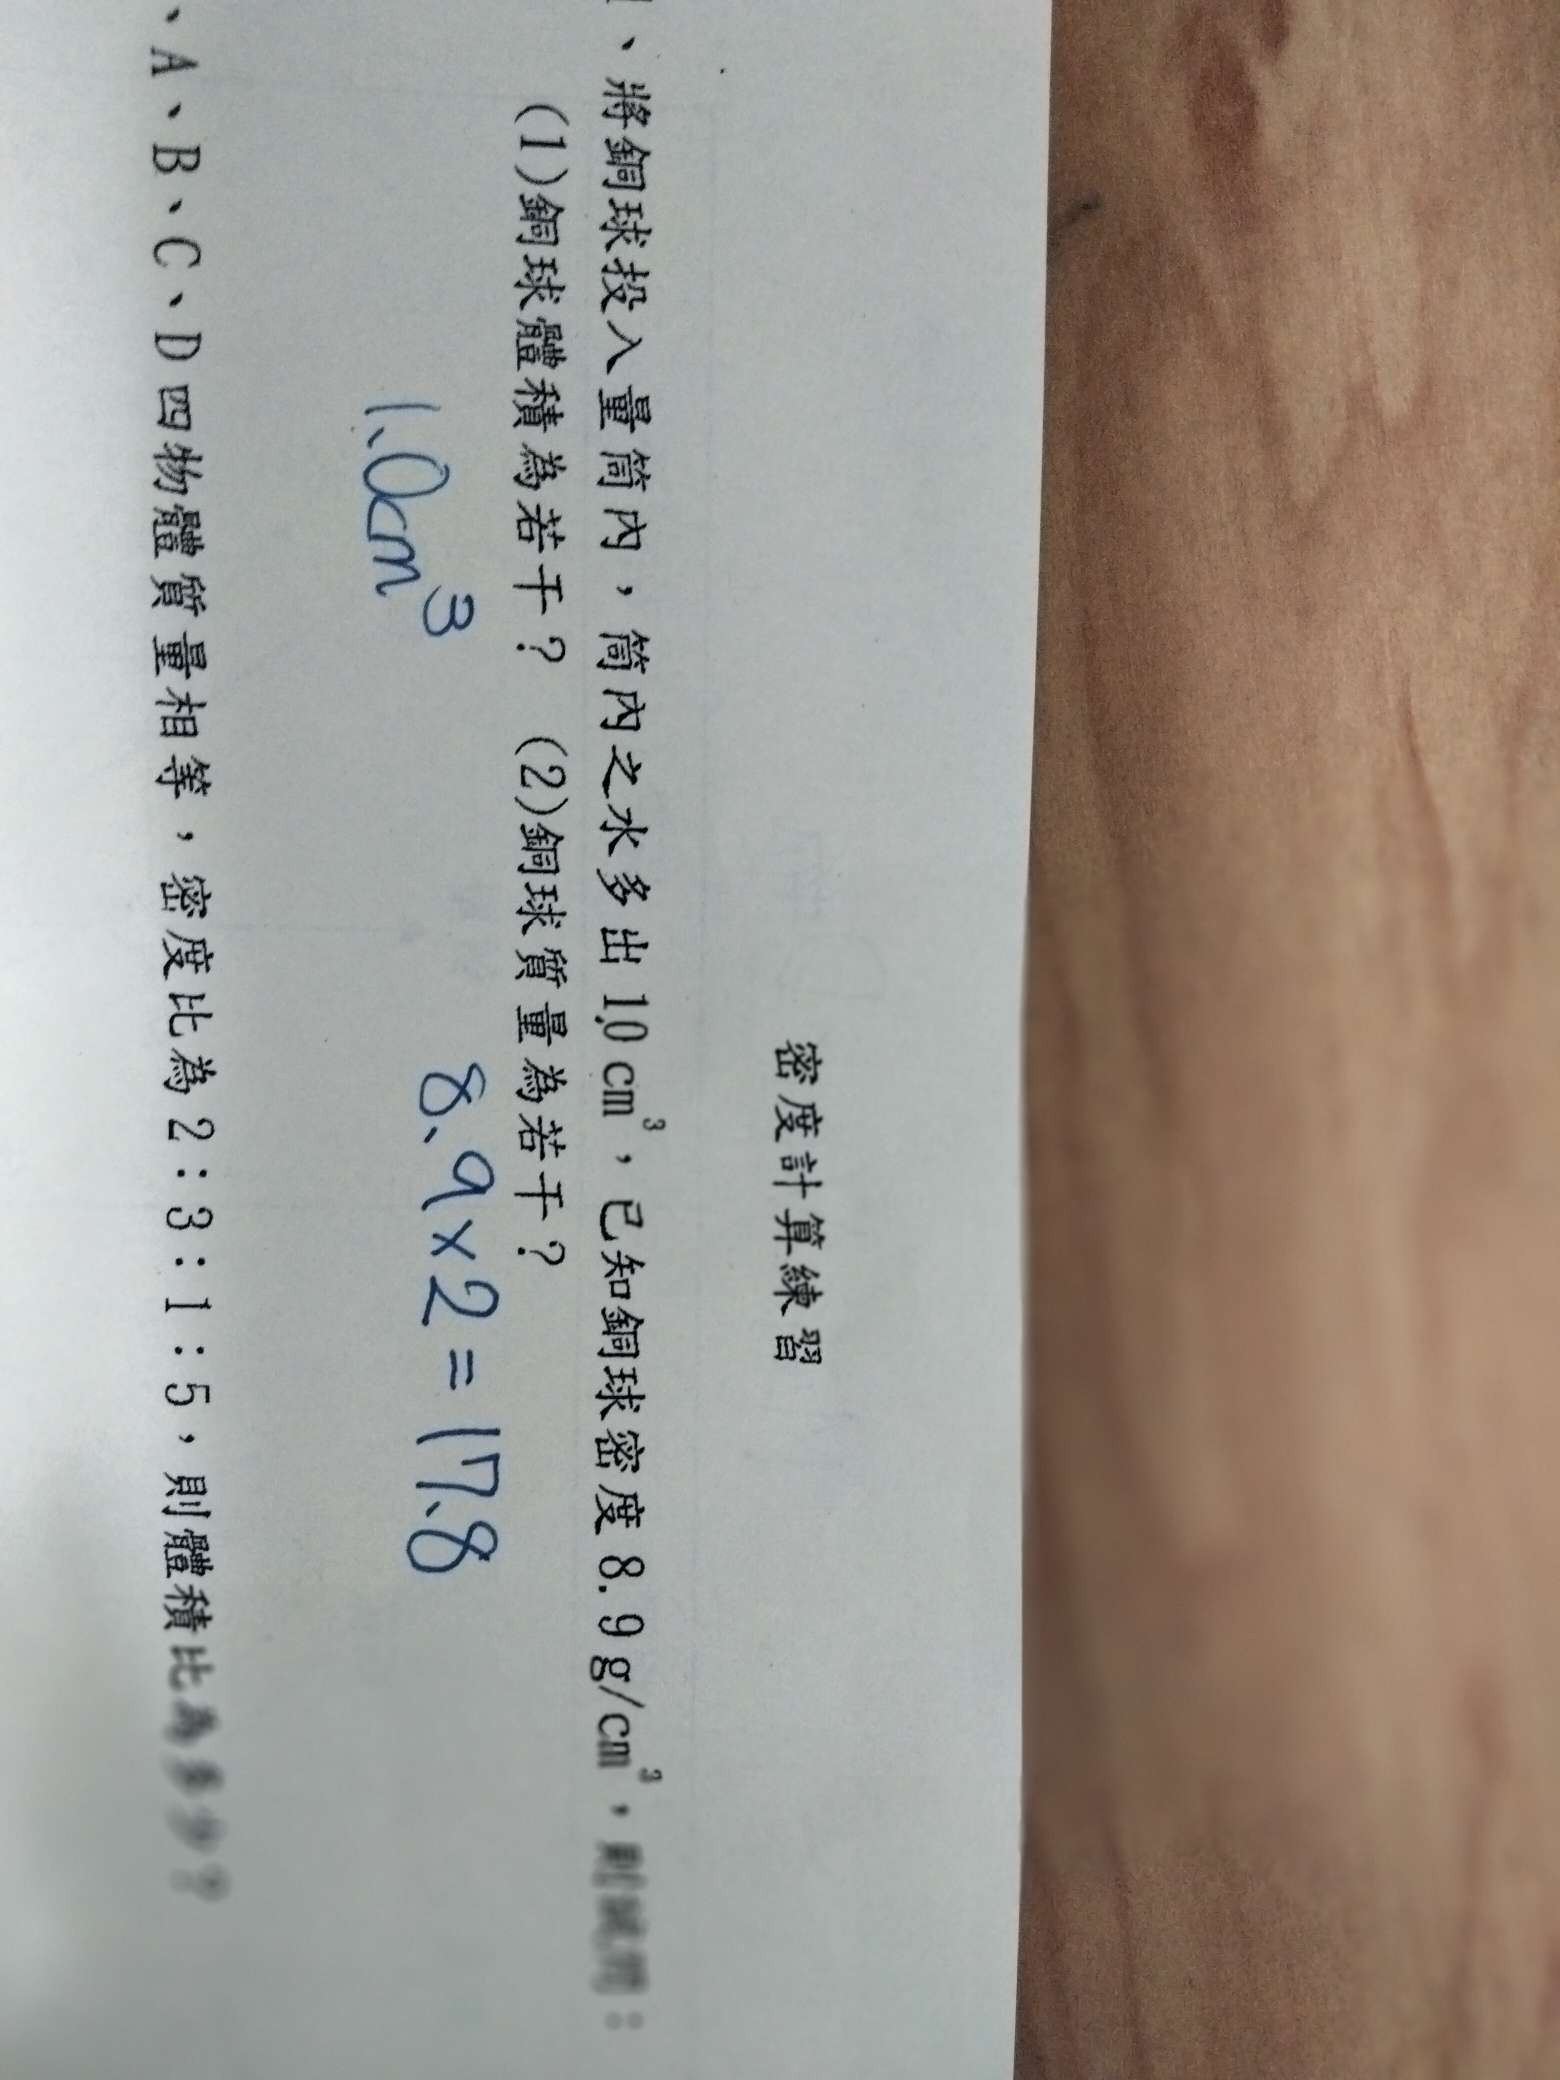 密度計算練習
1、將銅球投入量筒內，筒內之水多出 1.0 cm³，已知銅球密度 8.9 g/cm³，則試問：
(1)銅球體積為若干？ (2)銅球質量為若干？
1.0cm³ 8.9×2=17.8
、A、B、C、D 四物體質量相等，密度比為 2：3：1：5，則體積比為多少？